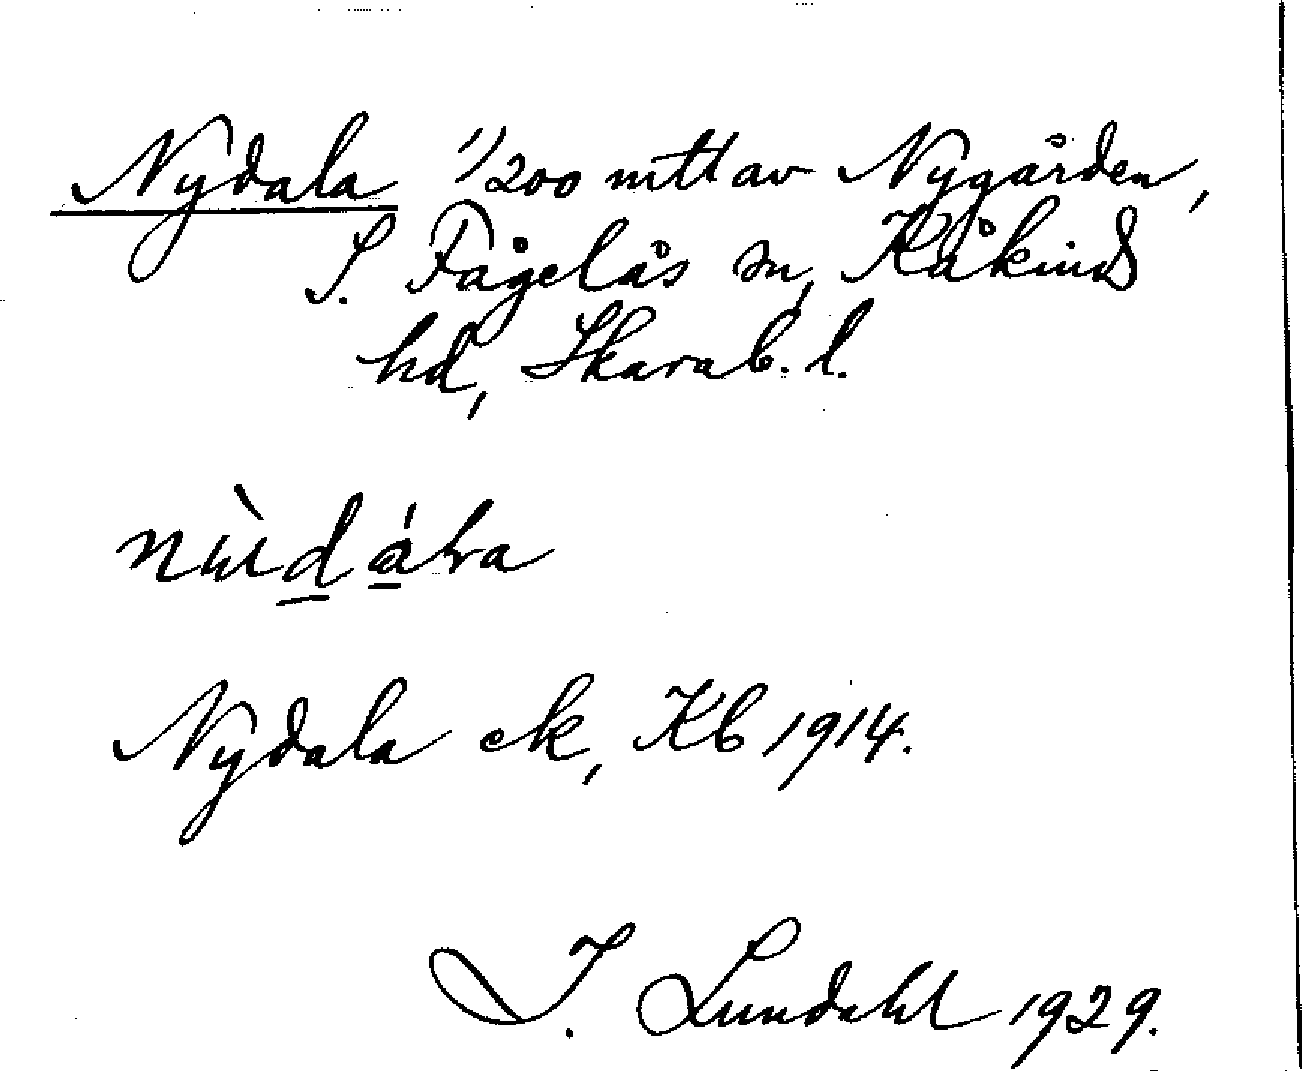 Nydala 1/200 mtl av Nygården,
S. Fågelås sn, Kåkinds
hd, Skarab. l.
Nydala ek, Kb 1914.
I. Lundahl 1929.